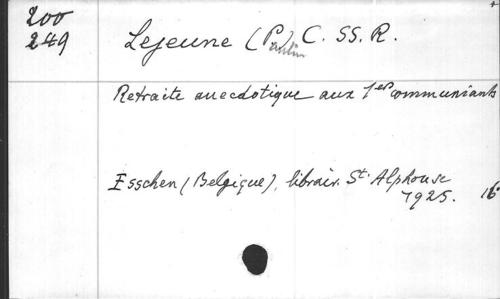 200
249
Lejeune (Paulin) C. SS. R.
Retraite anecdotique aux 1ers communiants
Esschen (Belgique), librair. St. Alphonse
1925. 16°